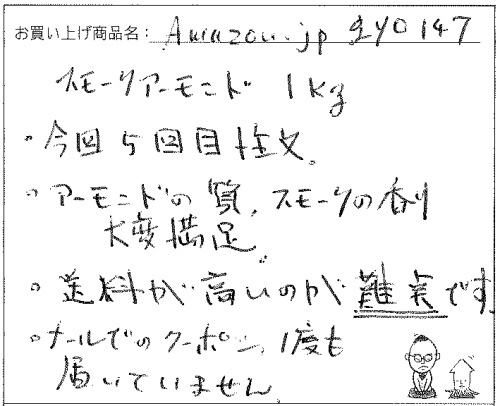 お買い上げ商品名: Amazon.jp ¥4０147
スモークアーモンド 1kg
・今回5回目注文。
・アーモンドの質、スモークの香り
大変満足。
・送料が高いのが難点です
・メールでのクーポン、1度も
届いていません。